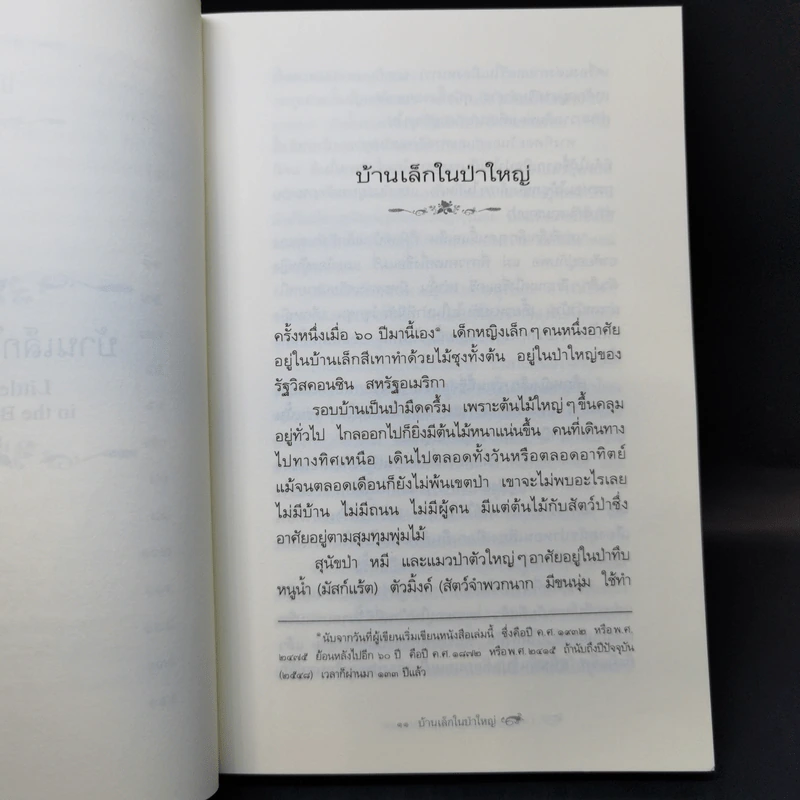 บ้านเล็กในป่าใหญ่
ครั้งหนึ่งเมื่อ ๖๐ ปีมานี้เอง* เด็กหญิงเล็กๆคนหนึ่งอาศัย
อยู่ในบ้านเล็กสีเทาทำด้วยไม้ซุงทั้งต้น อยู่ในป่าใหญ่ของ
รัฐวิสคอนซิน สหรัฐอเมริกา
รอบบ้านเป็นป่ามืดครึ้ม เพราะต้นไม้ใหญ่ๆขึ้นคลุม
อยู่ทั่วไป ไกลออกไปก็ยิ่งมีต้นไม้หนาแน่นขึ้น คนที่เดินทาง
ไปทางทิศเหนือ เดินไปตลอดทั้งวันหรือตลอดอาทิตย์
แม้จนตลอดเดือนก็ยังไม่พ้นเขตป่า เขาจะไม่พบอะไรเลย
ไม่มีบ้าน ไม่มีถนน ไม่มีผู้คน มีแต่ต้นไม้กับสัตว์ป่าซึ่ง
อาศัยอยู่ตามสุมทุมพุ่มไม้
สุนัขป่า หมี และแมวป่าตัวใหญ่ๆอาศัยอยู่ในป่าทึบ
หนูน้ำ (มัสก์แร้ต) ตัวมิ้งค์ (สัตว์จำพวกนาก มีขนนุ่ม ใช้ทำ
*นับจากวันที่ผู้เขียนเริ่มเขียนหนังสือเล่มนี้ ซึ่งคือปี ค.ศ. ๑๙๓๒ หรือพ.ศ.
๒๔๗๕ ย้อนหลังไปอีก ๖๐ ปี คือปี ค.ศ. ๑๘๗๒ หรือพ.ศ. ๒๔๑๕ ถ้านับถึงปีปัจจุบัน
(๒๕๔๘) เวลาก็ผ่านมา ๑๓๓ ปีแล้ว
๑๑ บ้านเล็กในป่าใหญ่